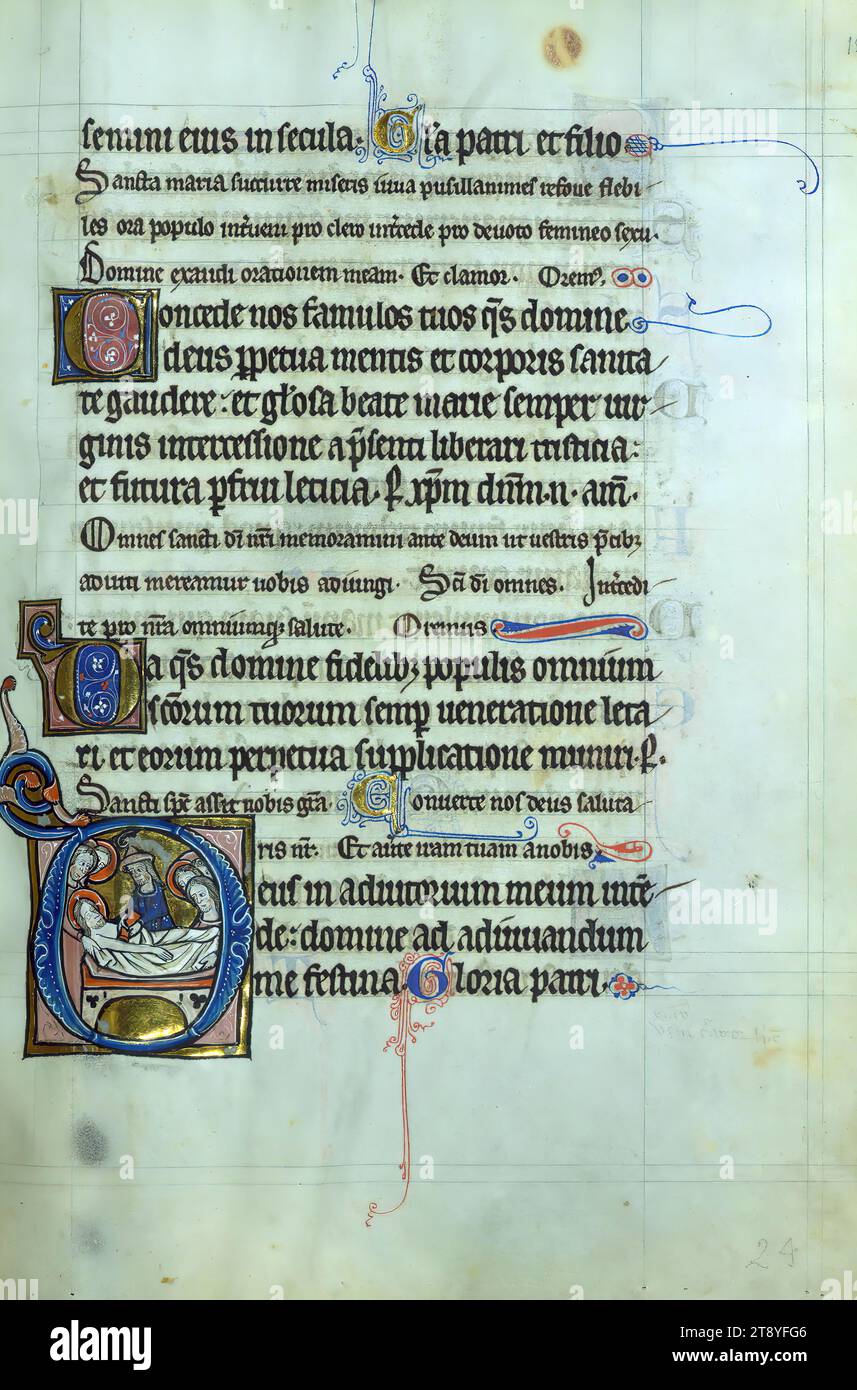 semini eius in secula. Gl'a patri et filio
Sancta maria succurre miseris iuua pusillanimes refoue flebi
les ora populo int'ueni pro clero int'cede pro deuoto femineo sexu.
Domine exaudi orationem meam. Et clamor. Orem9.
Concede nos famulos tuos q̄s domine
deus p̱petua mentis et corporis sanita
te gaudere: et gl'osa beate marie semper uir
ginis intercessione a p̄senti liberari tristicia:
et futura p̱frui leticia. P̱ xp̄m dn̄m.n. am̄.
Omnes sancti dī nr̄i memoramini ante deum ut uestris p̄cibꝫ
adiuti mereamur uobis adiungi. Sc̄i dī omnes. Int'cedi
te pro nr̄a omniumqꝫ salute. Oremus
Da q̄s domine fidelibꝫ populis omnium
sc̄orum tuorum semp̱ ueneratione leta
ri et eorum perpetua supplicatione muniri. P̱.
Sancti sp̄c assit nobis gr̄a. Conuerte nos deus saluta
ris nr̄. Et au'te iram tuam a nobis.
Deus in adiutorium meum inte͞
de: domine ad adiuuandum
me festina. Gloria patri.
24
alamy
Image ID: 2T8YFG6
www.alamy.com